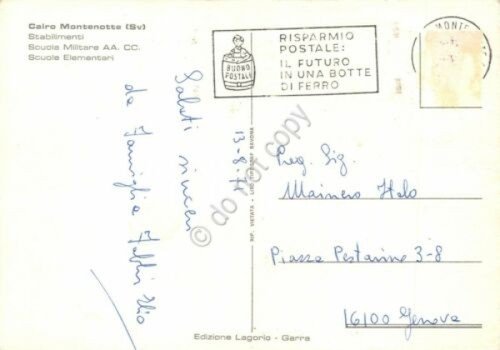 Cairo Montenotte (Sv)
Stabilimenti
Scuola Militare AA. CC.
Scuole Elementari
BUONO
POSTALE
RISPARMIO
POSTALE:
IL FUTURO
IN UNA BOTTE
DI FERRO
MONTENO
13-8-7
Saluti sinceri
da Famiglia
RIP. VIETATA
SAVONA
do not copy
Preg. Sig.
Mainero Italo
Piazza Pestarino 3-8
16100 Genova
Edizione Lagorio - Garra